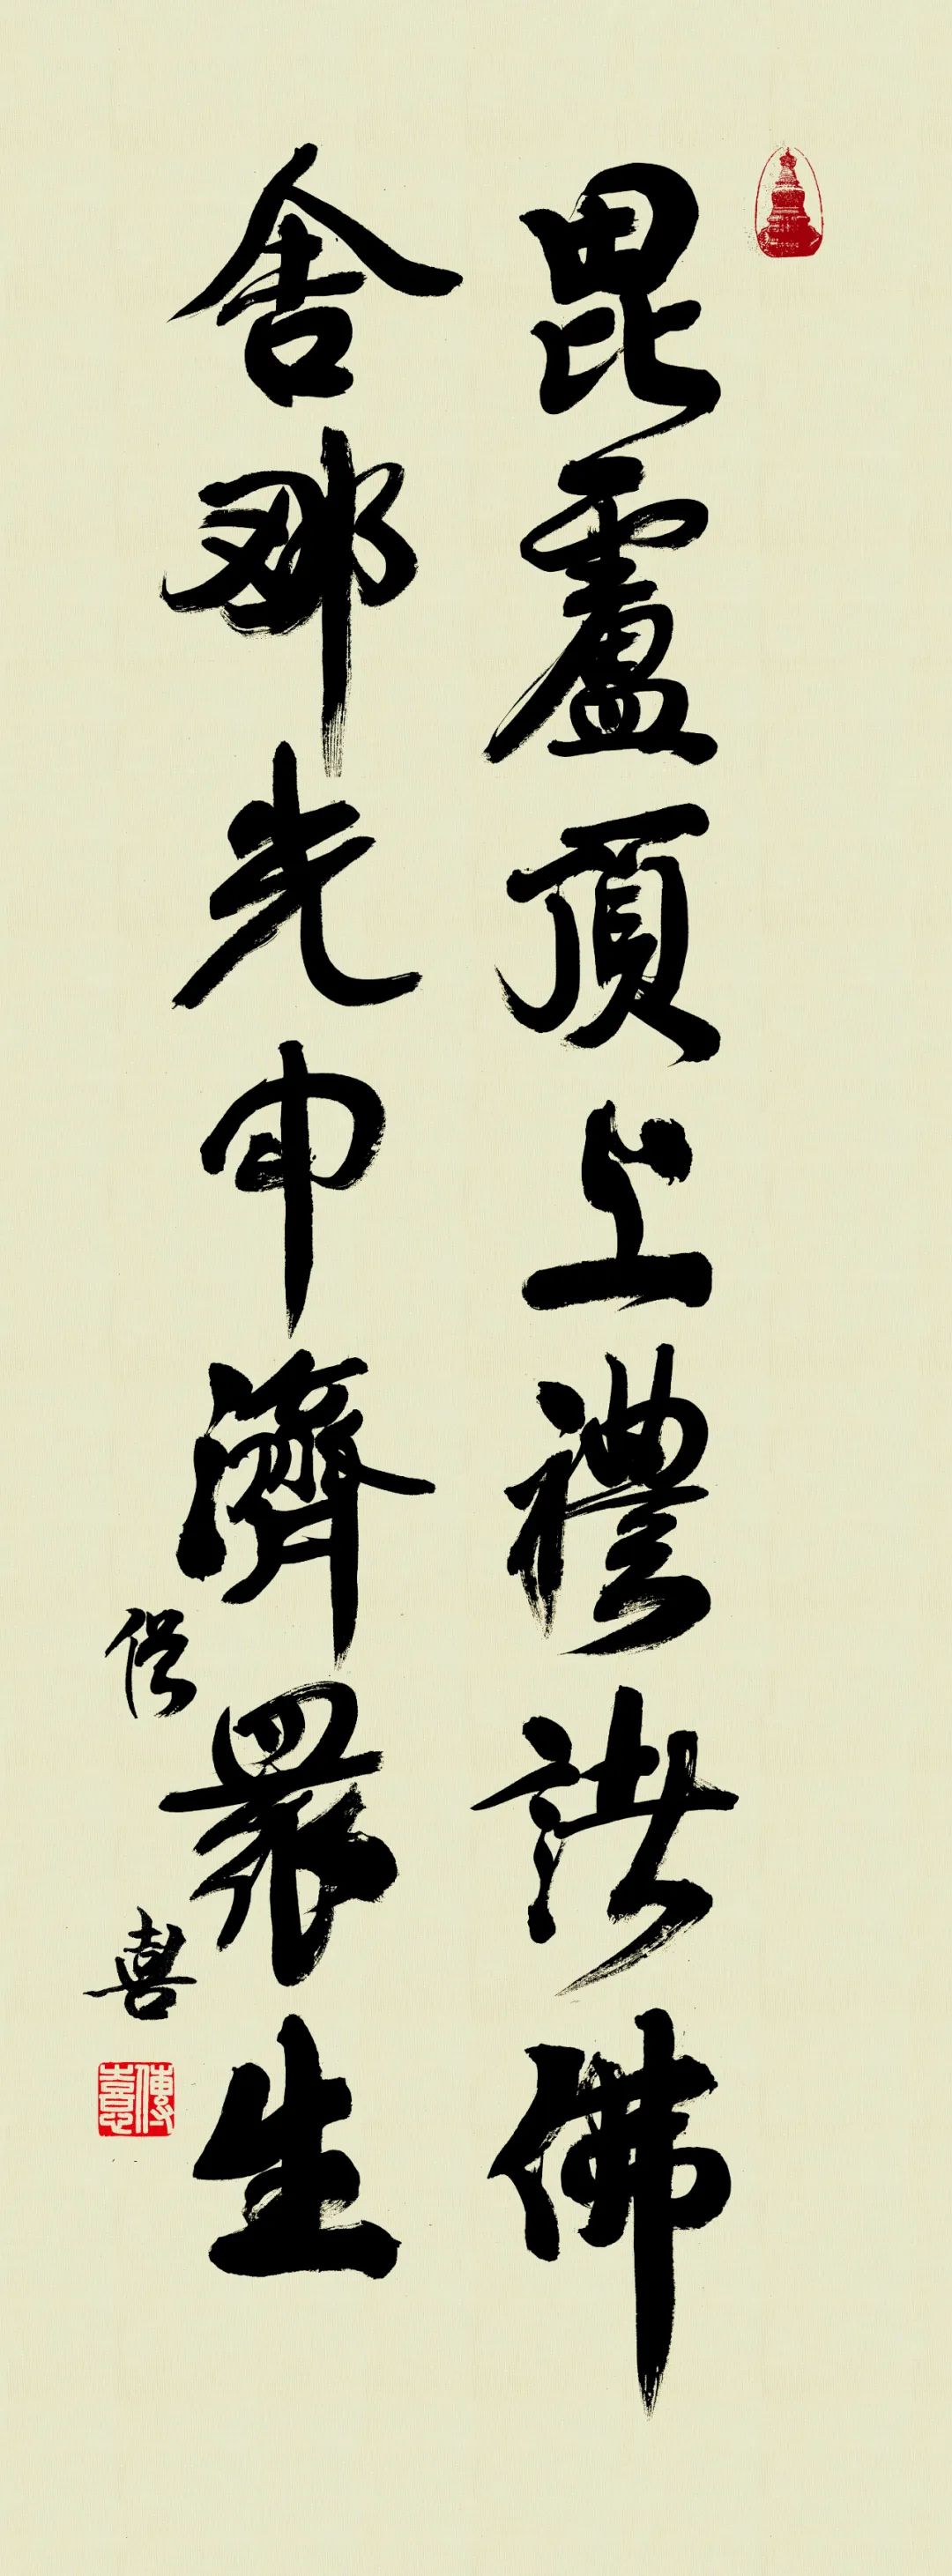 毘盧頂上禮諸佛
舍那光中濟眾生
傳喜
傳喜